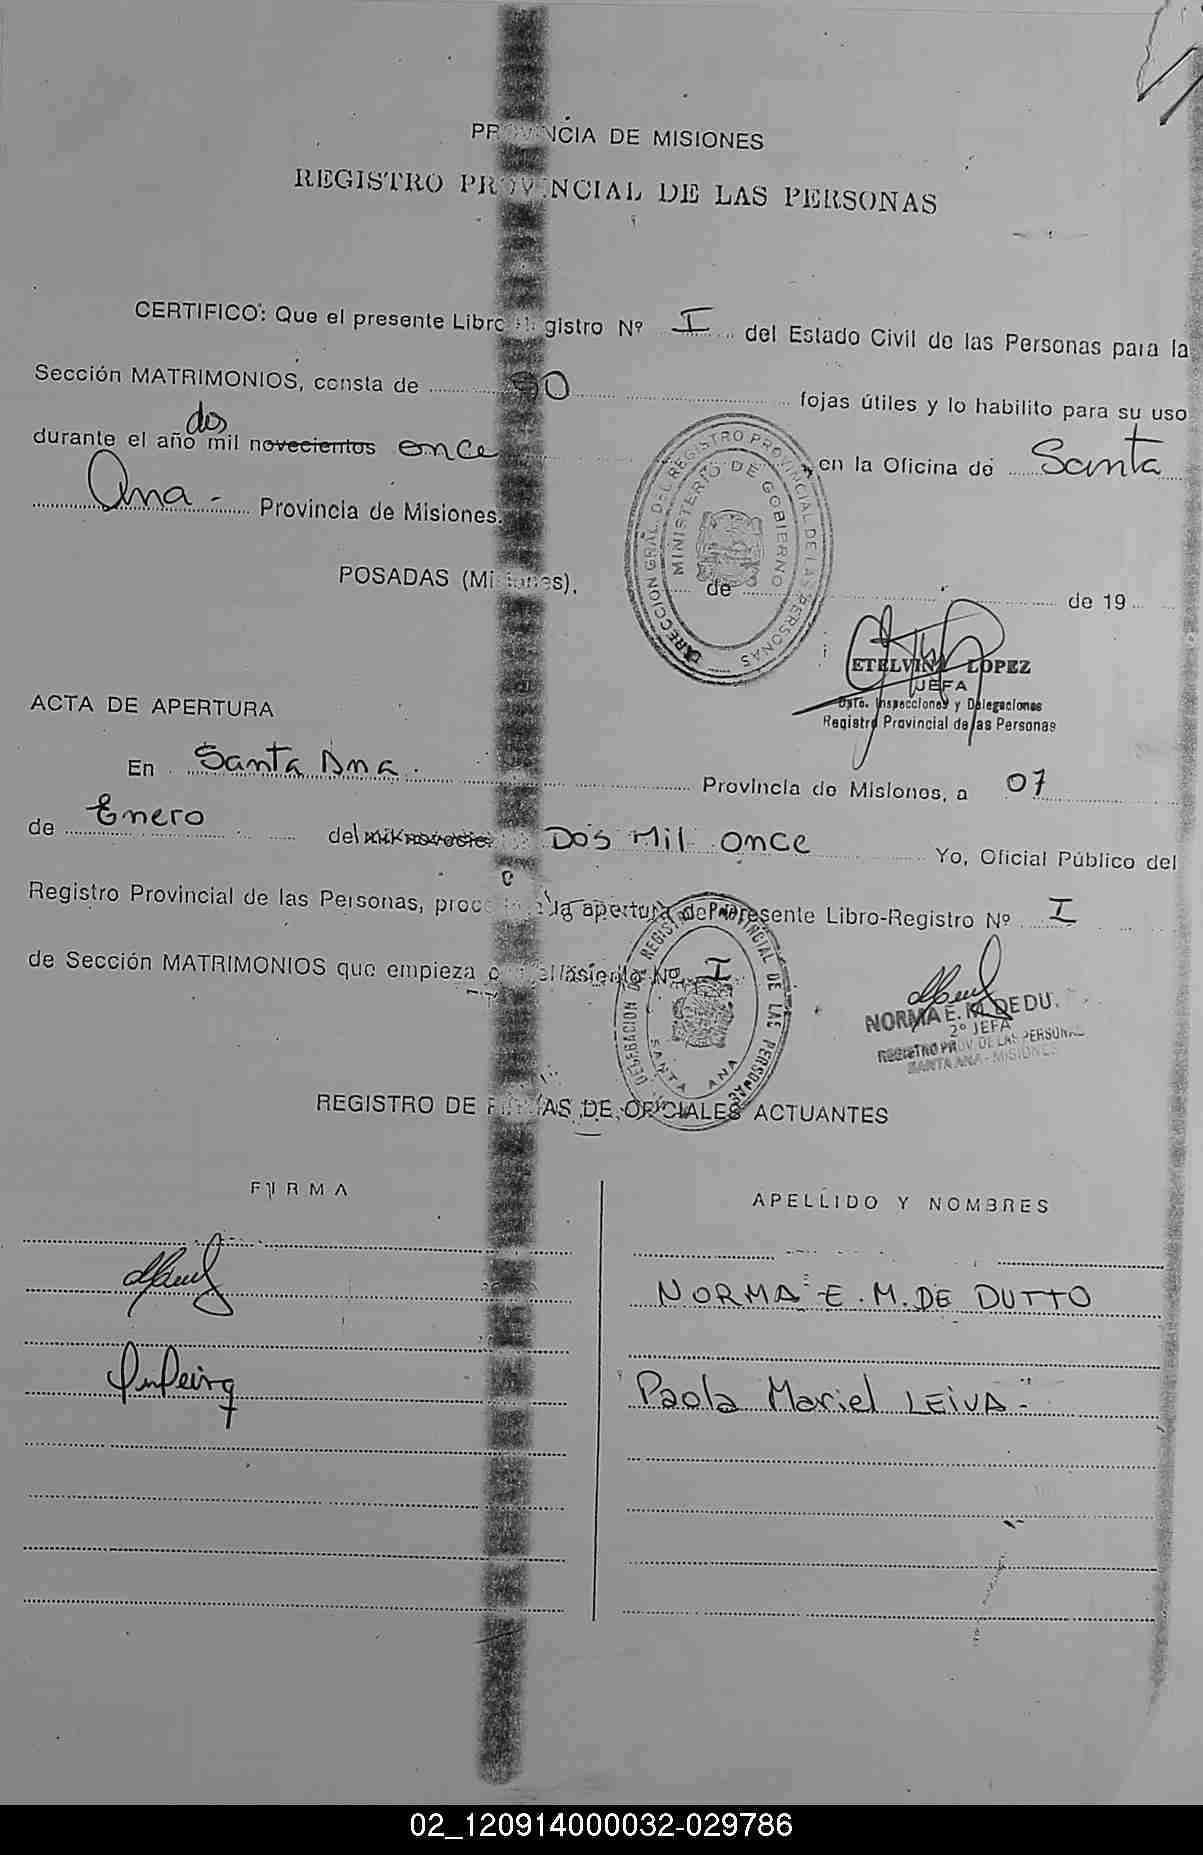 PROVINCIA DE MISIONES
REGISTRO PROVINCIAL DE LAS PERSONAS
CERTIFICO: Que el presente Libro Registro Nº I del Estado Civil de las Personas para la
Sección MATRIMONIOS, consta de 90 fojas útiles y lo habilito para su uso
dos
durante el año mil novecientos once en la Oficina de Santa
Ana - Provincia de Misiones.
DIRECCION GRAL. DEL REGISTRO PROVINCIAL DE LAS PERSONAS
MINISTERIO DE GOBIERNO
POSADAS (Misiones), de de 19
ETELVINA LOPEZ
JEFA
Dpto. Inspecciones y Delegaciones
Registro Provincial de las Personas
ACTA DE APERTURA
En Santa Ana. Provincia de Misiones, a 07
de Enero del mil novecie. Dos Mil once Yo, Oficial Público del
Registro Provincial de las Personas, proc a la apertura del presente Libro-Registro Nº I
de Sección MATRIMONIOS que empieza con el asiento Nº I
DELEGACION DEL REGISTRO PROVINCIAL DE LAS PERSONAS
SANTA ANA
NORMA E. M. DE DU.
2º JEFA
REGISTRO PROV. DE LAS PERSONAS
SANTA ANA - MISIONES
REGISTRO DE FIRMAS DE OFICIALES ACTUANTES
FIRMA
APELLIDO Y NOMBRES
NORMA E. M. DE DUTTO
Paola Mariel LEIVA.-
02_120914000032-029786